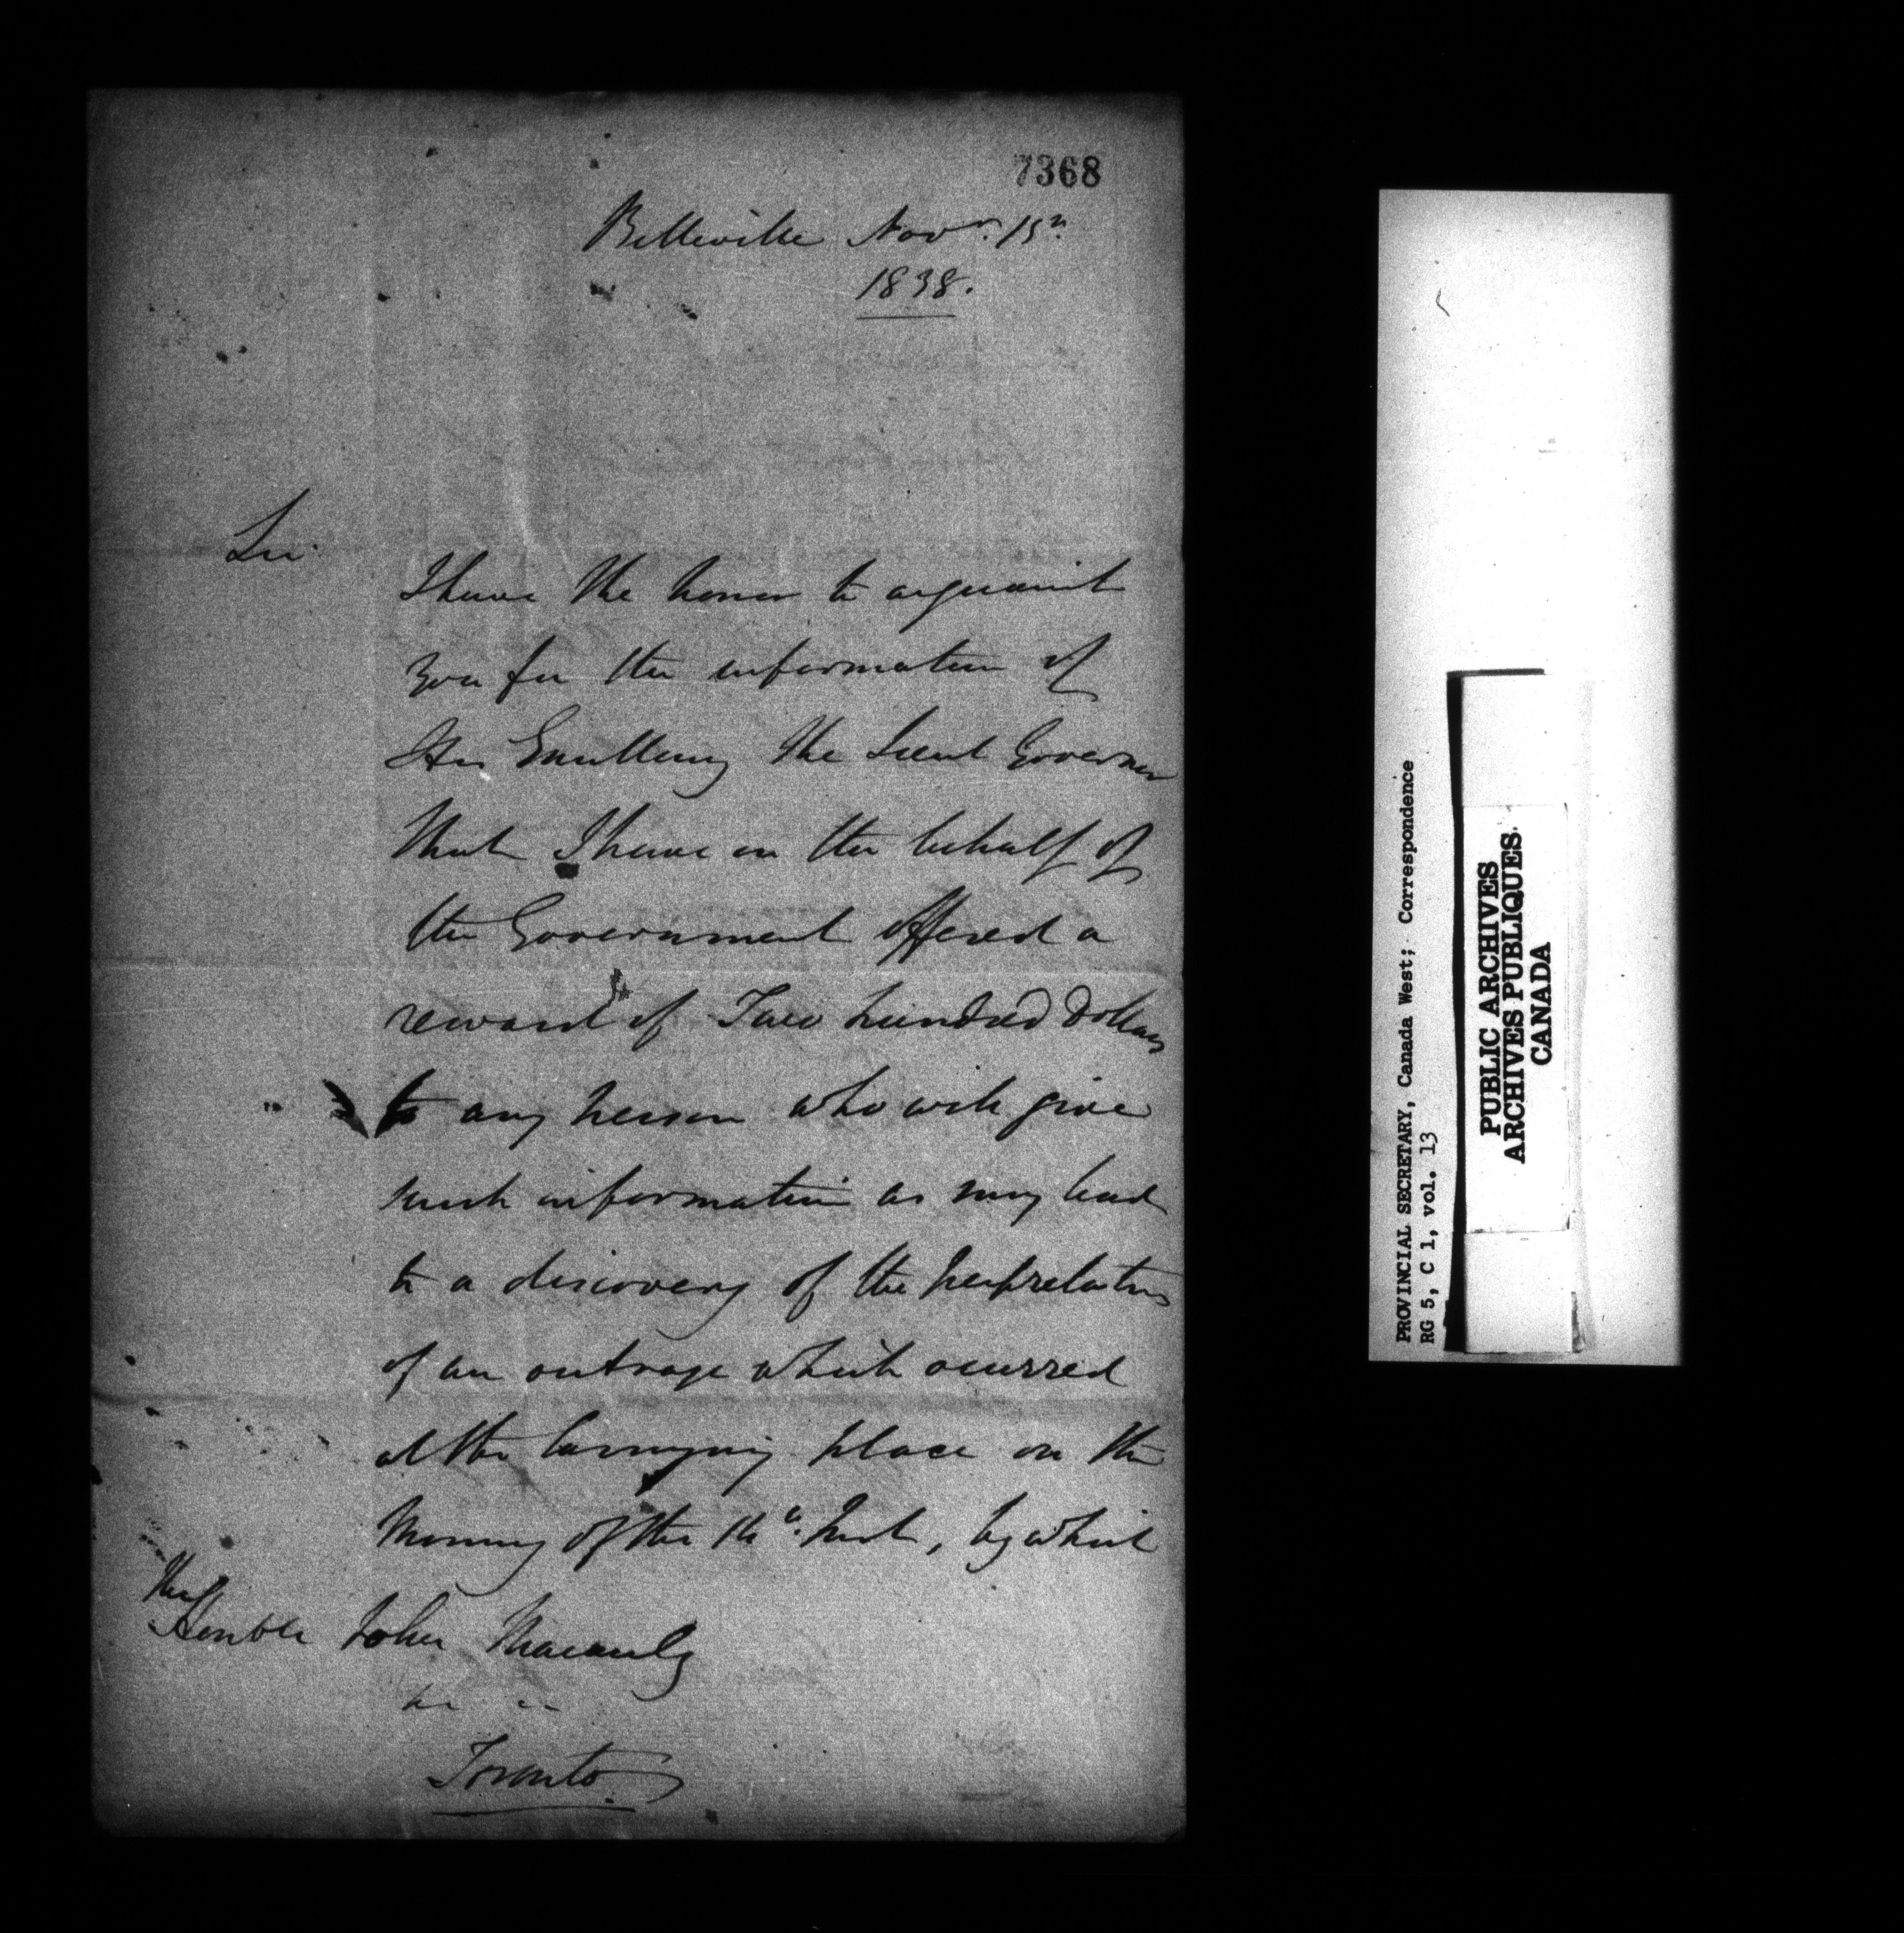 7368
Belleville Novr. 15th
1838.
Sir.
I have the honor to acquaint
you for the information of
His Excellency the Lieut Governor
that I have on the behalf of
the Government offered a
reward of Two hundred Dollars
to any person who will give
such information as may lead
to a discovery of the perpretators
of an outrage which ocurred
at the Carrying place on the
Morning of the 14th Inst, by which
The
Honble John Macauly
Toronto
PROVINCIAL SECRETARY, Canada West; Correspondence
RG 5, C 1, vol. 13
PUBLIC ARCHIVES
ARCHIVES PUBLIQUES
CANADA